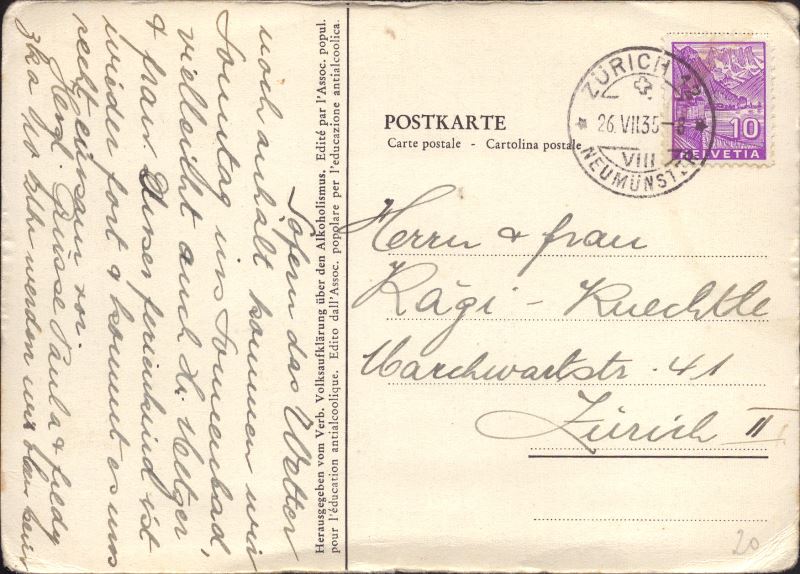 Sofern das Wetter
noch anhält kommen wir
Sonntag ins Sonnenbad,
vielleicht auch H. Metger
& frau. Unser ferienkind ist
wieder fort & kommt es uns
recht einsam vor.
Herzl. Grüsse Paula & 
 10 Uhr werden wir 
Herausgegeben vom Verb. Volksaufklärung über den Alkoholismus. Edité par l'Assoc. popul.
pour l'éducation antialcoolique. Edito dall'Assoc. popolare per l'educazione antialcoolica.
POSTKARTE
Carte postale - Cartolina postale
ZÜRICH
26.VII.35
VIII
NEUMÜNSTER
10
HELVETIA
Herrn & frau
Kägi-Knechtle
Marchwartstr. 41
Zürich II
20